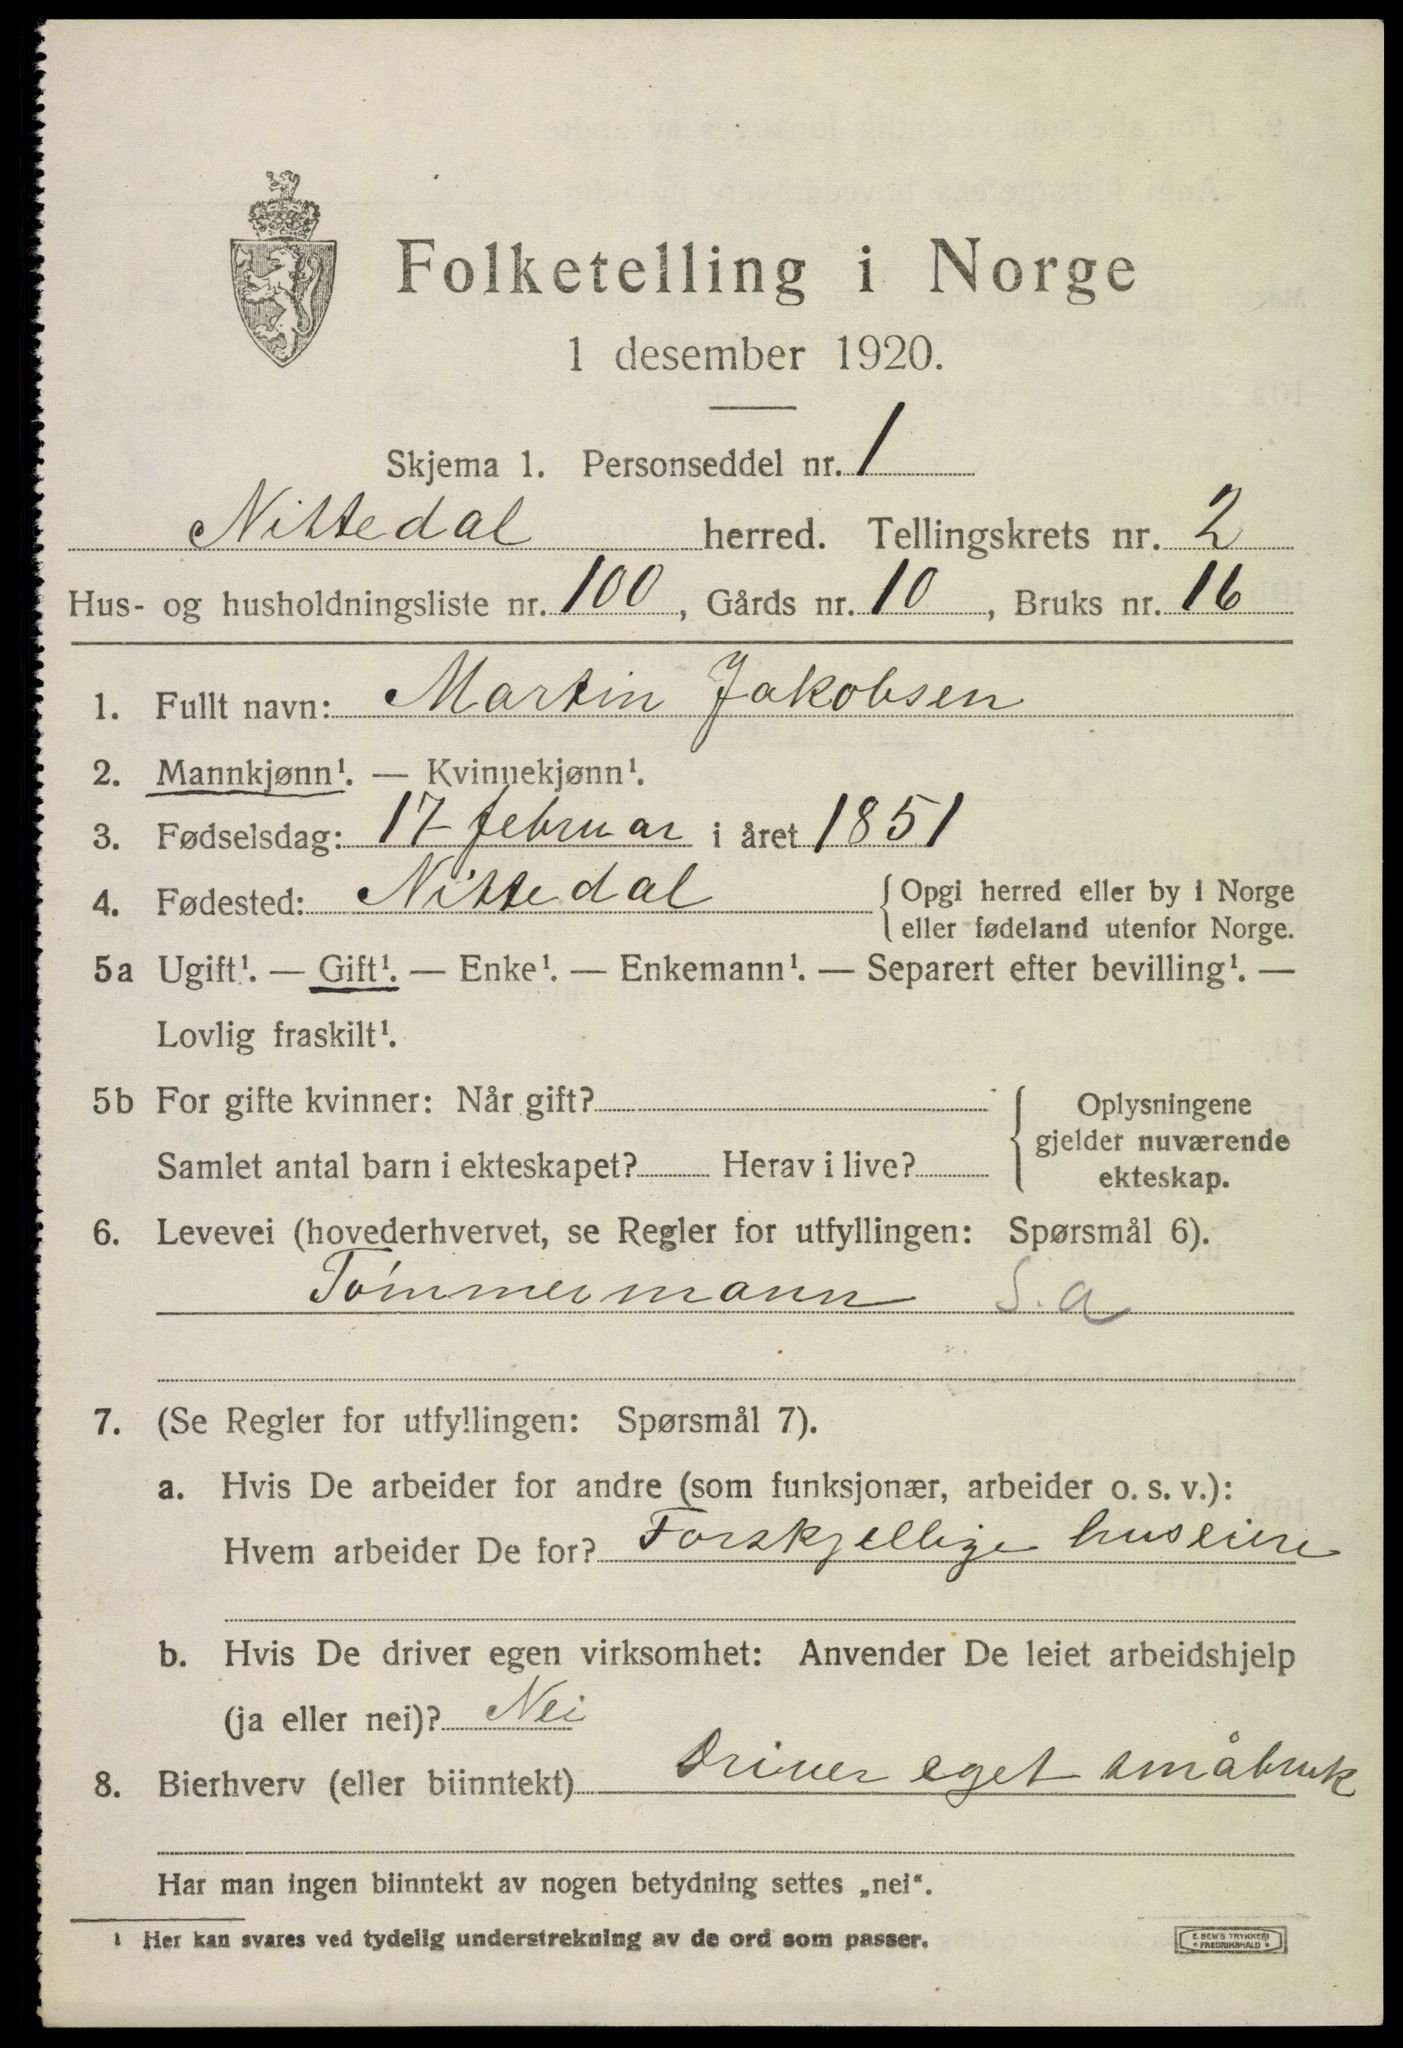 Folketelling i Norge
1 desember 1920.
Skjema 1. Personseddel nr. 1
Nittedal herred. Tellingskrets nr. 2
Hus- og husholdningsliste nr. 100, Gårds nr. 10, Bruks nr. 16
1. Fullt navn: Martin Jakobsen
2. Mannkjønn¹. — Kvinnekjønn¹.
3. Fødselsdag: 17 februar i året 1851
4. Fødested: Nittedal { Opgi herred eller by i Norge
eller fødeland utenfor Norge.
5a Ugift¹. — Gift¹. — Enke¹. — Enkemann¹. — Separert efter bevilling¹. —
Lovlig fraskilt¹.
5b For gifte kvinner: Når gift?
Samlet antal barn i ekteskapet? Herav i live?
{ Oplysningene
gjelder nuværende
ekteskap.
6. Levevei (hovederhvervet, se Regler for utfyllingen: Spørsmål 6).
Tómmermann S.a
7. (Se Regler for utfyllingen: Spørsmål 7).
a. Hvis De arbeider for andre (som funksjonær, arbeider o. s. v.):
Hvem arbeider De for? Forskjellige huseiere
b. Hvis De driver egen virksomhet: Anvender De leiet arbeidshjelp
(ja eller nei)? Nei
8. Bierhverv (eller biinntekt) Driver eget småbruk
Har man ingen biinntekt av nogen betydning settes „nei“.
¹ Her kan svares ved tydelig understrekning av de ord som passer.
E. SEM'S TRYKKERI
• FREDRIKSHALD •